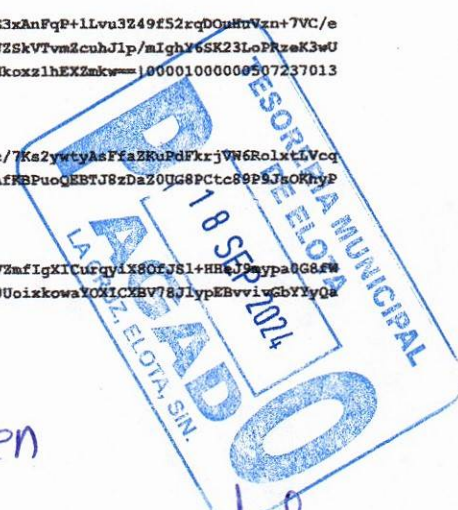 3xAnFqP+1Lvu3Z49f52rqDOuHuVzn+7VC/e
ZSkVTvmZcuhJ1p/mIghY6SK23LoPRzeK3wU
koxz1hEXZmkw==|00001000000507237013
/7Ks2ywtyAsFfaZKuPdFkrjVW6RolxtLVcq
fKBPuoQEBTJ8zDaZ0UG8PCtc89P9JsOKhyP
ZmfIgXICurqyiX8OfJS1+HHeJ9mypa0G8fW
UoixkowaYOXICXBV78JlypEBvviwGbYYyQa
TESORERIA MUNICIPAL
DE ELOTA
PAGADO
18 SEP 2024
LA CRUZ, ELOTA, SIN.
en